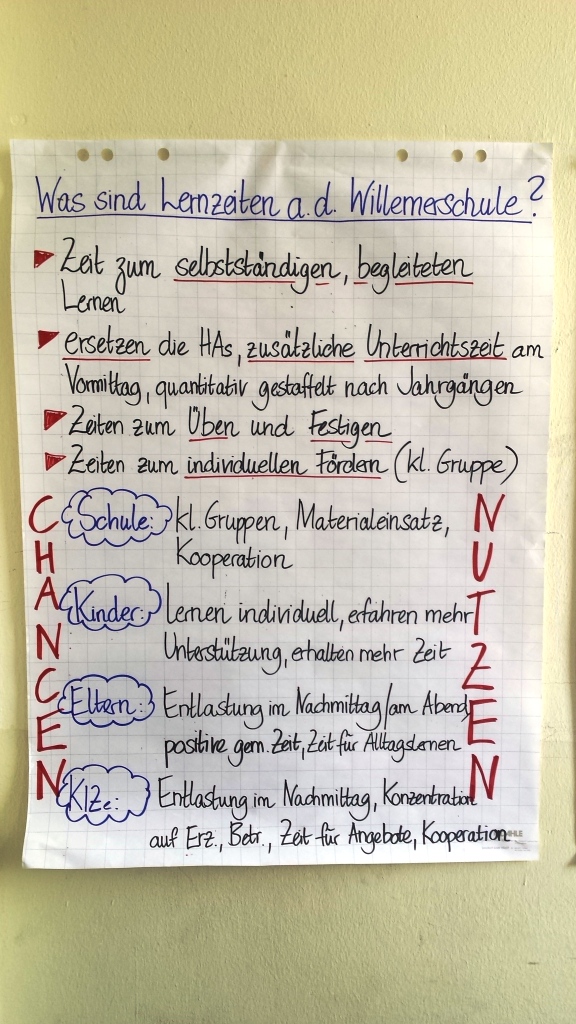 Was sind Lernzeiten a.d. Willemerschule?
Zeit zum selbstständigen, begleiteten
Lernen
ersetzen die HAs, zusätzliche Unterrichtszeit am
Vormittag, quantitativ gestaffelt nach Jahrgängen
Zeiten zum Üben und Festigen
Zeiten zum individuellen Fördern (kl. Gruppe)
CHANCEN
Schule: kl. Gruppen, Materialeinsatz,
Kooperation
Kinder: Lernen individuell, erfahren mehr
Unterstützung, erhalten mehr Zeit
Eltern: Entlastung im Nachmittag/am Abend,
positive gem. Zeit, Zeit für Alltagslernen
KIZe: Entlastung im Nachmittag, Konzentration
auf Erz., Betr., Zeit für Angebote, Kooperation
NUTZEN